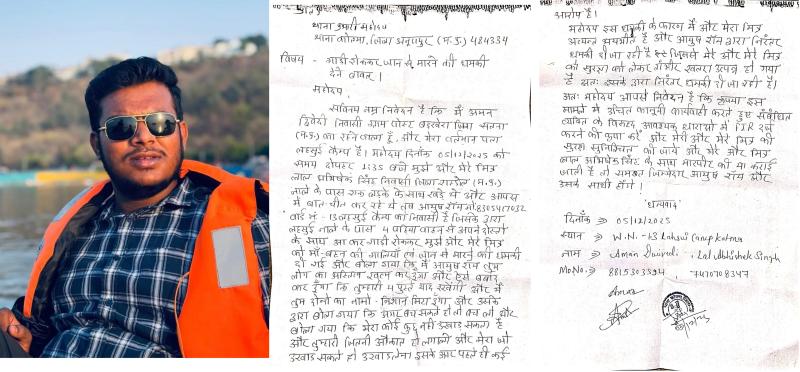 थाना प्रभारी महोदय
थाना कोतमा, जिला अनूपपुर (म.प्र.) 484334
विषय - गाडी रोककर जान से मारने की धमकी
देने बाबत।
महोदय
सविनय नम्र निवेदन है कि मैं अमन
द्विवेदी निवासी ग्राम पोस्ट जिला सतना
(म.प्र.) का रहने वाला हूँ, और मेरा वर्तमान पता
लहसुई कैम्प है। महोदय दिनाँक 05/12/2025 को
समय दोपहर 1:35 बजे मुझे और मेरे मित्र
लाल अभिषेक सिंह निवासी जिला (म.प्र.)
नाले के पास एक लडके के साथ खडे थे और आपस
में बात चीत कर रहे थे तब आयुष राय 8305417032
वार्ड नं. - 13 लहसुई कैम्प का निवासी है जिसके द्वारा
लहसुई नाले के पास 4 पहिया वाहन से अपने दोस्तो
के साथ आ कर गाडी रोककर मुझे और मेरे मित्र
को माँ-बहन की गालियाँ एवं जान से मारने की धमकी
दी गई और बोला गया कि मैं आयुष राय तुम
लोग का अस्तित्व खत्म कर दूंगा और ऐसे बर्बाद
कर दूँगा कि तुम्हारी 4 पुस्ते याद रखेगी और मैं
तुम दोनों का नामो-निशान मिटा दूंगा और उसके
द्वारा बोला गया कि अगर बच सकते हो तो बच लो और
बोला गया कि मेरा कोई कुछ नहीं उखाड सकता है
और तुम्हारी जितनी औकात हो लगालो और मेरा जो
उखाड सकते हो उखाड लेना। इसके ऊपर पहले ही कई
आरोप है।
महोदय इस धमकी के कारण मैं और मेरा मित्र
अत्यन्त भयभीत है और आयुष राय द्वारा निरंतर
धमकी दी जा रही है जिससे मेरे और मेरे मित्र
की सुरक्षा को लेकर गंभीर खतरा उत्पन्न हो गया
है अतः इसके द्वारा निरंतर धमकी दी जा रही है।
अतः महोदय आपसे निवेदन है कि कृप्या इस
मामले में उचित कानूनी कार्यवाही करते हुए संबंधित
व्यक्ति के विरुद्ध आवश्यक धाराओं में FIR दर्ज
करने की कृपा करें और मेरी और मेरे मित्र की
सुरक्षा सुनिश्चित की जाये और मेरे और मित्र
लाल अभिषेक सिंह के साथ मारपीट की या कराई
जाती है तो समस्त जिम्मेदार आयुष राय और
उसके साथी होंगे।
"धन्यवाद"
दिनाँक → 05/12/2025
स्थान → W.N.-13 Lahsui Camp Kotma
नाम → Aman Dwivedi, Lal Abhishek Singh
Mo No. → 8815303394, 7470708347
Aman